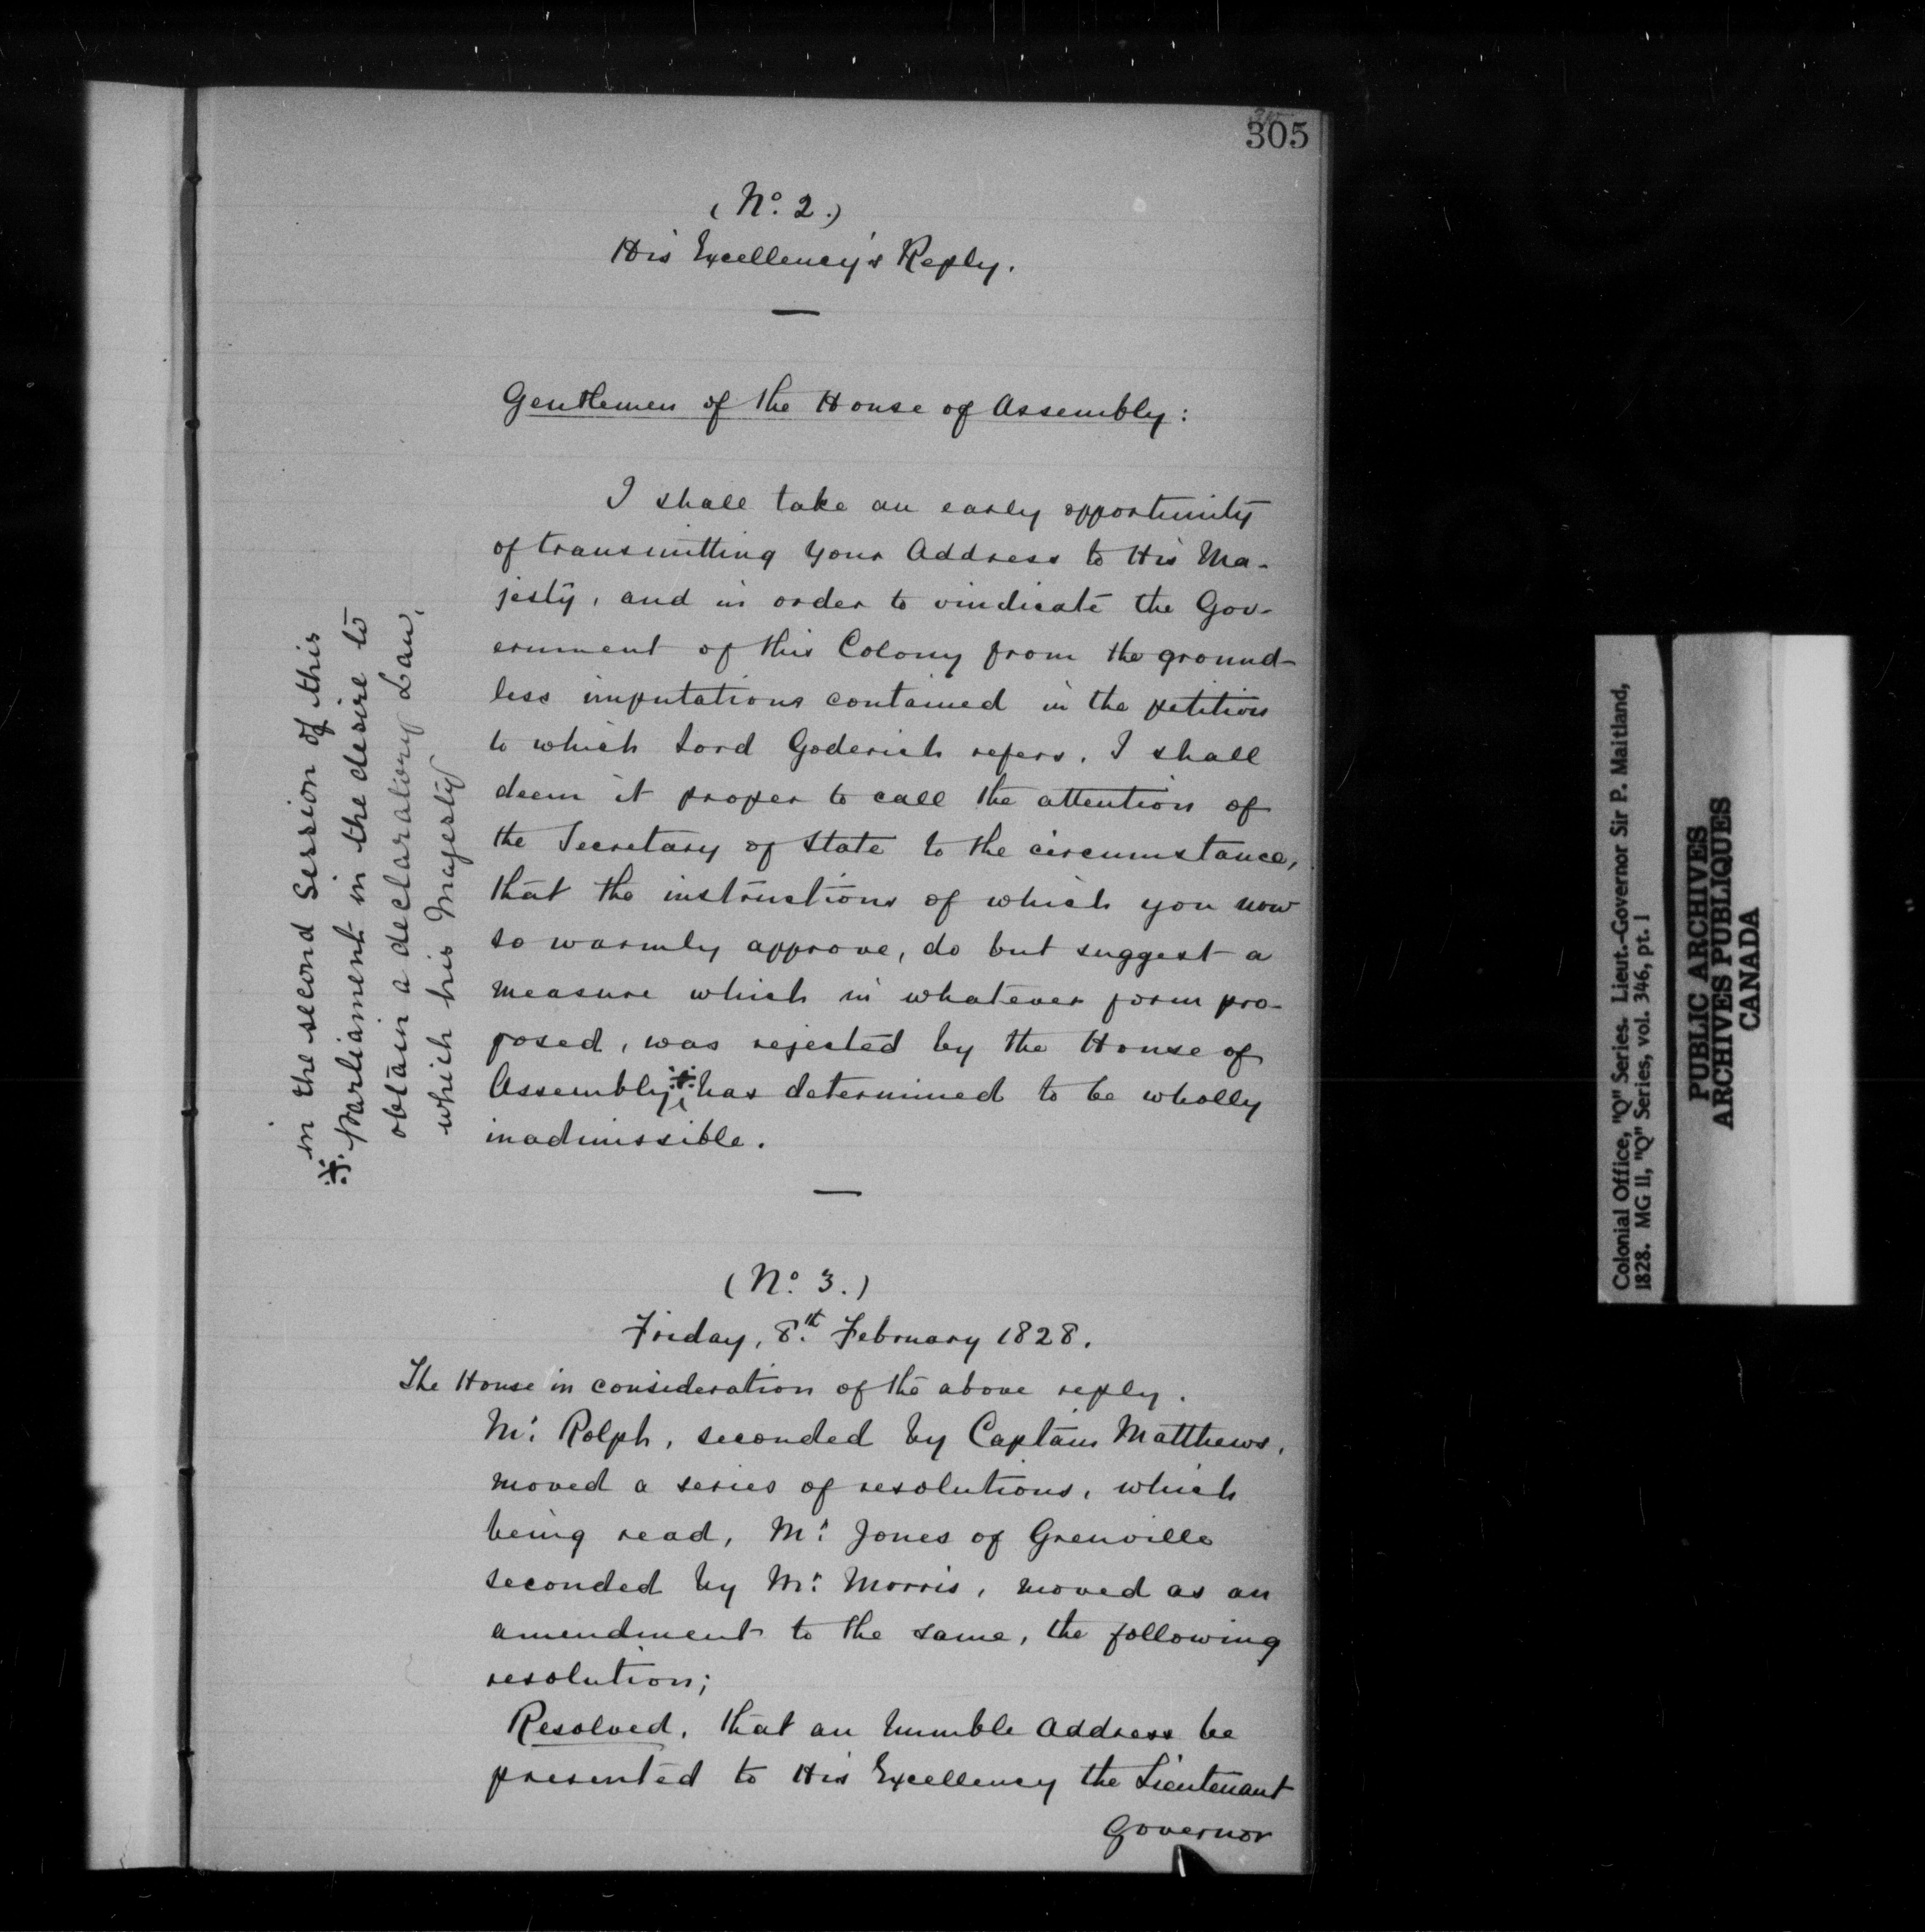 305
(No. 2.)
His Excellency's Reply.
Gentlemen of the House of Assembly:
I shall take an early opportunity
of transmitting your Address to His Ma-
jesty, and in order to vindicate the Gov-
ernment of this Colony from the ground-
less imputations contained in the petition
to which Lord Goderich refers, I shall
deem it proper to call the attention of
the Secretary of State to the circumstance,
that the instructions of which you now
so warmly approve, do but suggest a
measure which in whatever form pro-
posed, was rejected by the House of
Assembly ※ has determined to be wholly
inadmissible.
※ in the second Session of this
Parliament in the desire to
obtain a declaratory Law,
which his Majesty
(No. 3.)
Friday, 8.th February 1828.
The House in consideration of the above reply.
Mr. Rolph, seconded by Captain Matthews,
moved a series of resolutions, which
being read, Mr. Jones of Grenville
seconded by Mr. Morris, moved as an
amendment to the same, the following
resolution;
Resolved, that an humble address be
presented to His Excellency the Lieutenant
Governor
Colonial Office, "Q" Series. Lieut.-Governor Sir P. Maitland,
1828. MG 11, "Q" Series, vol. 346, pt. 1
PUBLIC ARCHIVES
ARCHIVES PUBLIQUES
CANADA